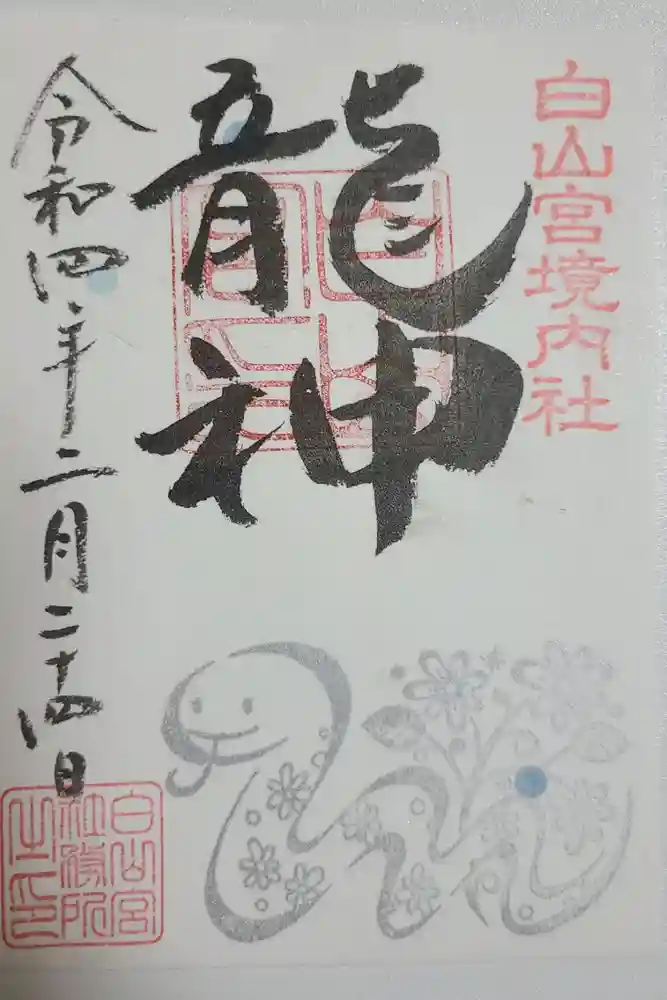 白山宮境内社
龍神
令和四年二月二十四日
白山宮
社務所
之印